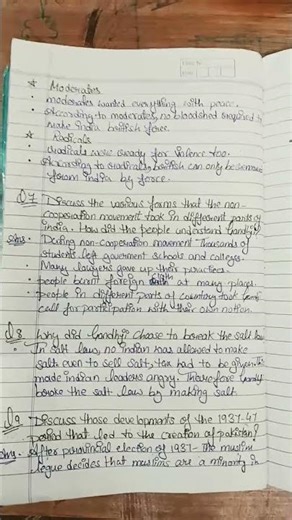 * Moderates
• moderates wanted everything with peace.
• According to moderates, no bloodshed required to
make India british free.
* Radicals
• radicals were ready for violence too.
• According to radicals, british can only be removed
from india by force.
Q7 Discuss the various forms that the non-
cooperation movement took in different parts of
India. How did the people understand Gandhiji?
Ans. During non-cooperation movement Thousands of
students left government schools and colleges.
• Many lawyers gave up their practice.
• people burnt foreign cloth at many places.
• people in different parts of country took
call for participation with their own notion.
Q8 Why did Gandhiji choose to break the salt law
• In salt law, no Indian was allowed to make
salts even to sell salt, tax had to be given. This
made indian leaders angry. Therefore
broke the salt laws by making salt.
Q9 Discuss those developments of the 1937-47
period that led to the creation of pakistan?
Ans. After provincial election of 1937- The muslim
league decides that muslims are a minority in